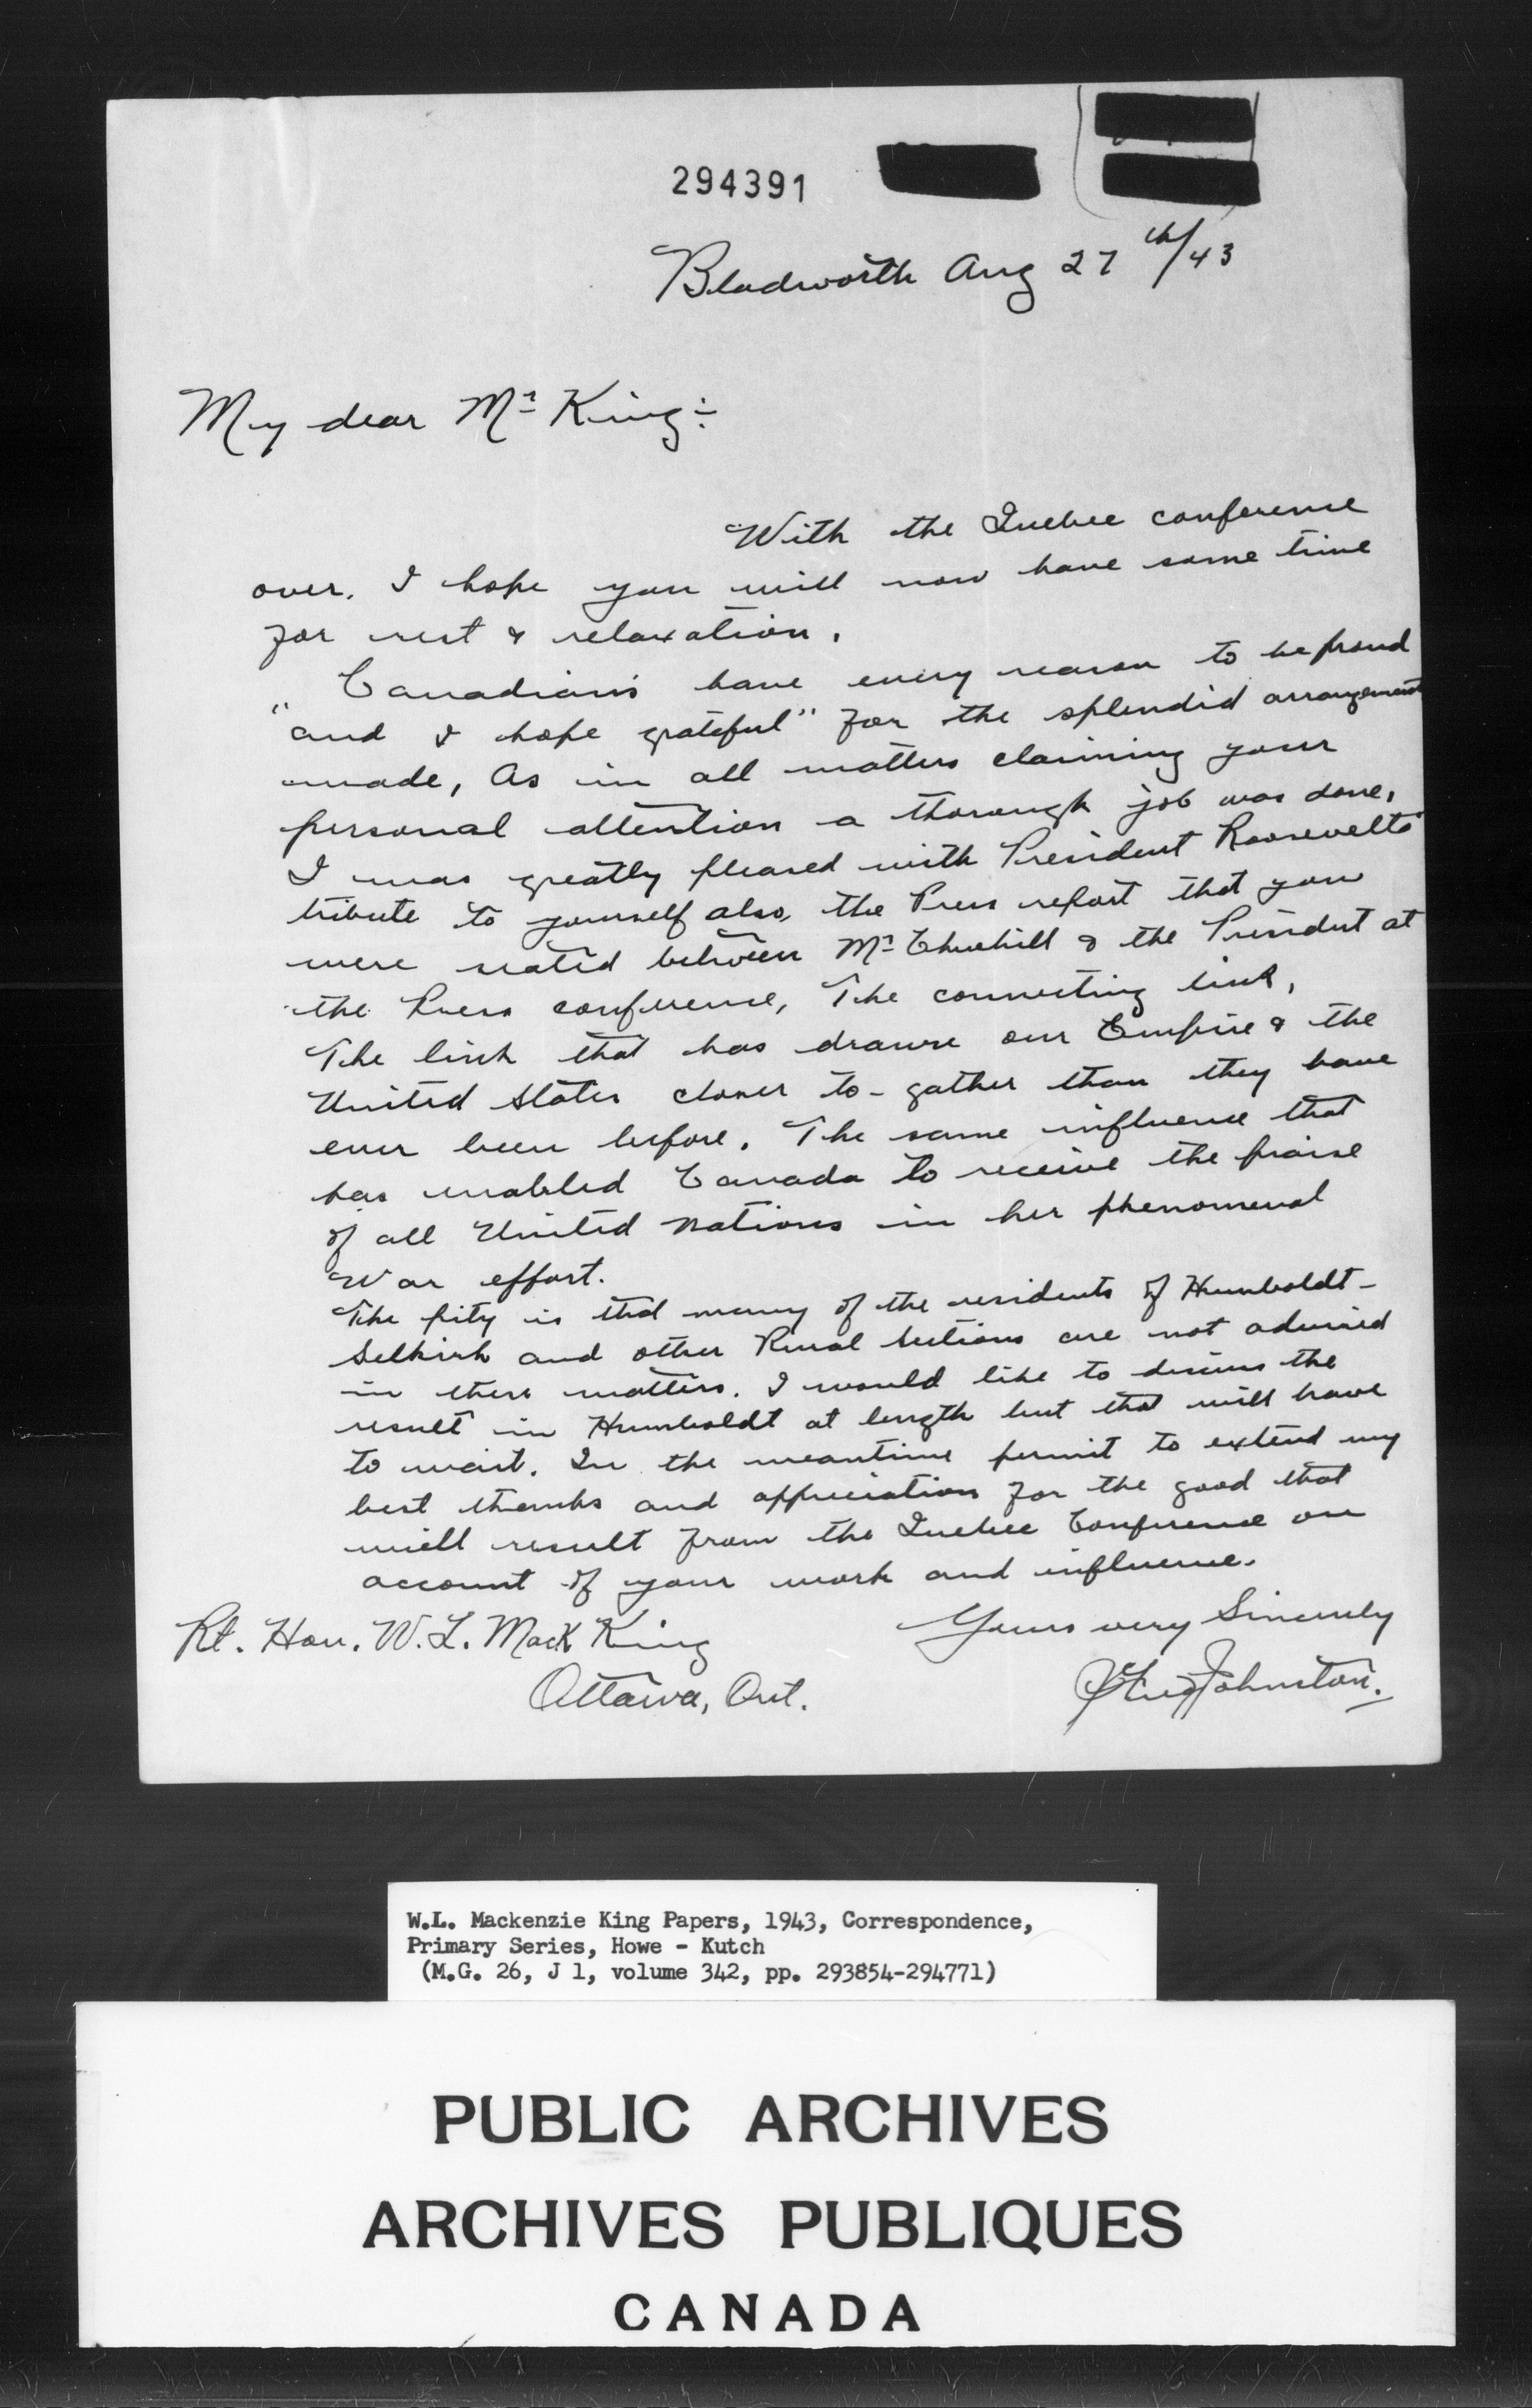 294391
Bladworth Aug 27th/43
My dear Mr King:
With the Quebec conference
over. I hope you will now have some time
for rest & relaxation.
Canadians have every reason to be proud
"and I hope grateful" for the splendid arrangements
made, As in all matters claiming your
personal attention a thorough job was done.
I was greatly pleased with President Roosevelts
tribute to yourself also, the Press report that you
were seated between Mr Churchill & the President at
the Press conference, The connecting link,
The link that has drawn our Empire & the
United States closer to-gather than they have
ever been before. The same influence that
has enabled Canada to receive the praise
of all United Nations in her phenomenal
War effort.
The pity is that many of the residents of Humboldt-
Selkirk and other Rural Sections are not advised
in these matters. I would like to discuss the
result in Humboldt at length but that will have
to wait. In the meantime permit to extend my
best thanks and appreciation for the good that
will result from the Quebec Conference on
account of your work and influence.
Yours very Sincerely
Johnston.
Rt. Hon. W. L. Mack King
Ottawa, Ont.
W.L. Mackenzie King Papers, 1943, Correspondence,
Primary Series, Howe - Kutch
(M.G. 26, J 1, volume 342, pp. 293854-294771)
PUBLIC ARCHIVES
ARCHIVES PUBLIQUES
CANADA